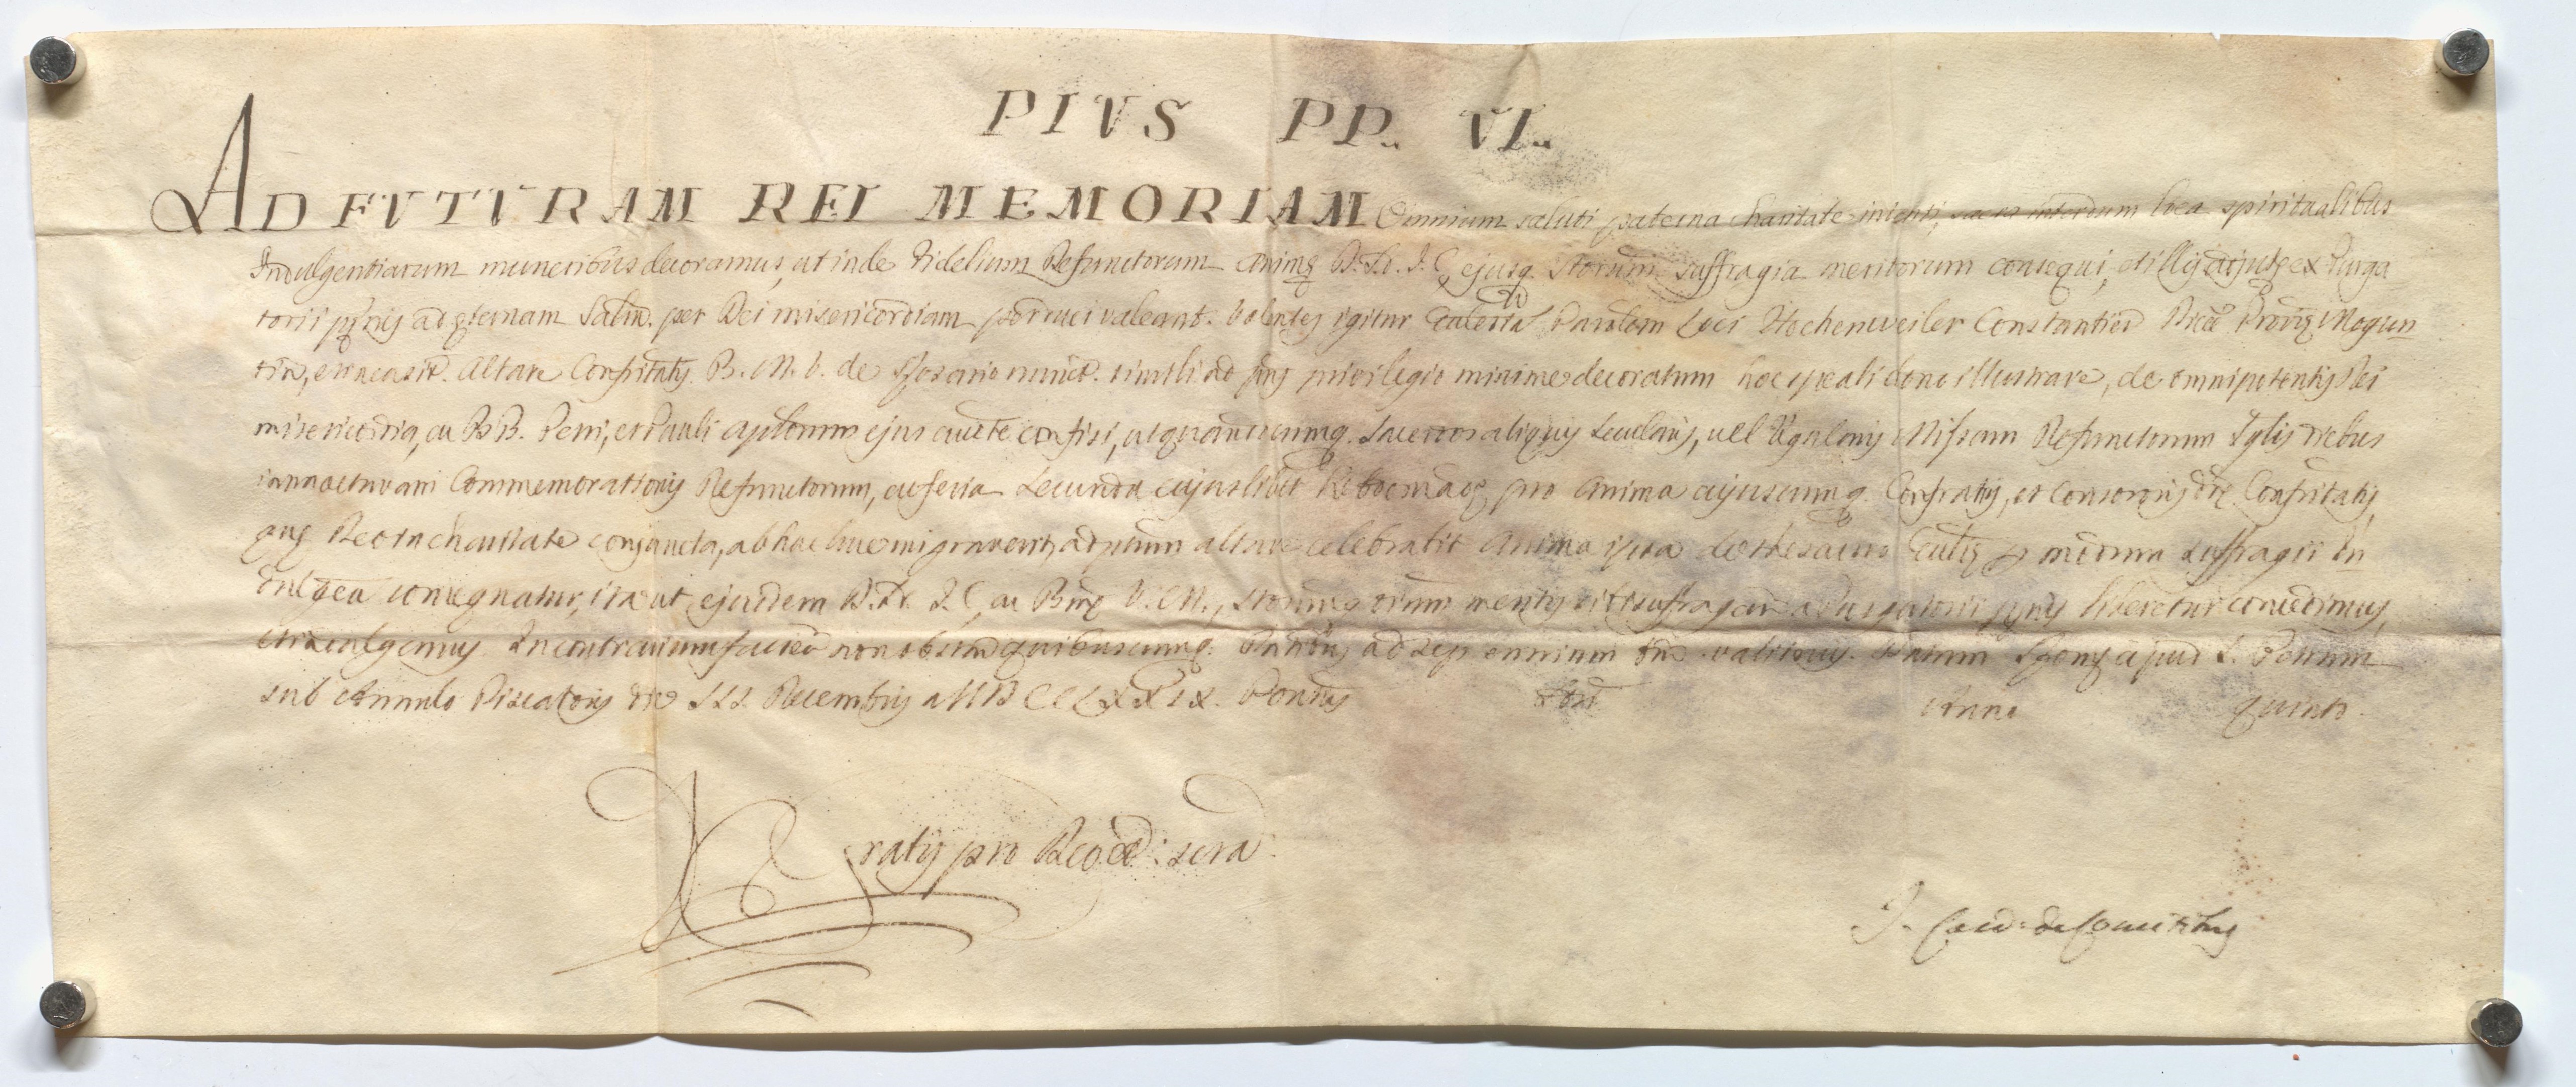 PIVS PP. VI.
AD FVTVRAM REI MEMORIAM Omnium saluti paterna charitate intenti, sacra interdum loca spiritualibus
Indulgentiarum muneribus decoramus, ut inde Fidelium Defunctorum Animę D. N. J. C. ejusq. Storum suffragia meritorum consequi, et illis adjutę ex Purga
torii pęnis ad ęternam Salūm. per Dei misericordiam perduci valeant. Volentes igitur Ecclesia Parolem Loci Hochenweiler Constantien Diœc Provię Mogun
Altare Confritatis B. M. V. de Rosario simili ad privilegio minime decoratum hoc speali dono illustrare, de omnipotentis Dei
misericordia, ac BB. Petri, et Pauli Aplorum ejus aucte confisi, ut quandocumq. Sacerdos aliquis Secularis, vel Regularis Missam Defunctorum
Commemorationis Defunctorum, ac feria Secunda cujuslibet Hebdomadę pro Anima cujuscumq. Confratis, et Consororis dtę Confritatis,
quę Deo in charitate conjuncta, ab hac luce migraverit, ad pttum altare celebrabit Anima ipsa de thesauro Ecclię p modum suffragii In
dulgea consequatur, ita ut ejusdem D. N. J. C., ac Bmę V. M., Storumq oium meritis sibi suffragan a Purgatorii pęnis liberetur concedimus,
et indulgemus. In contrarium facien non obstan quibuscumq. Pntibus ad Septennium tm valituris. Datum Romę apud S. Petrum
sub Annulo Piscatoris die III. Decembris MDCCLXXIX. Pontus nri Anno quinto.
Gratis pro Deo et scra
J. Card. de Comitibus